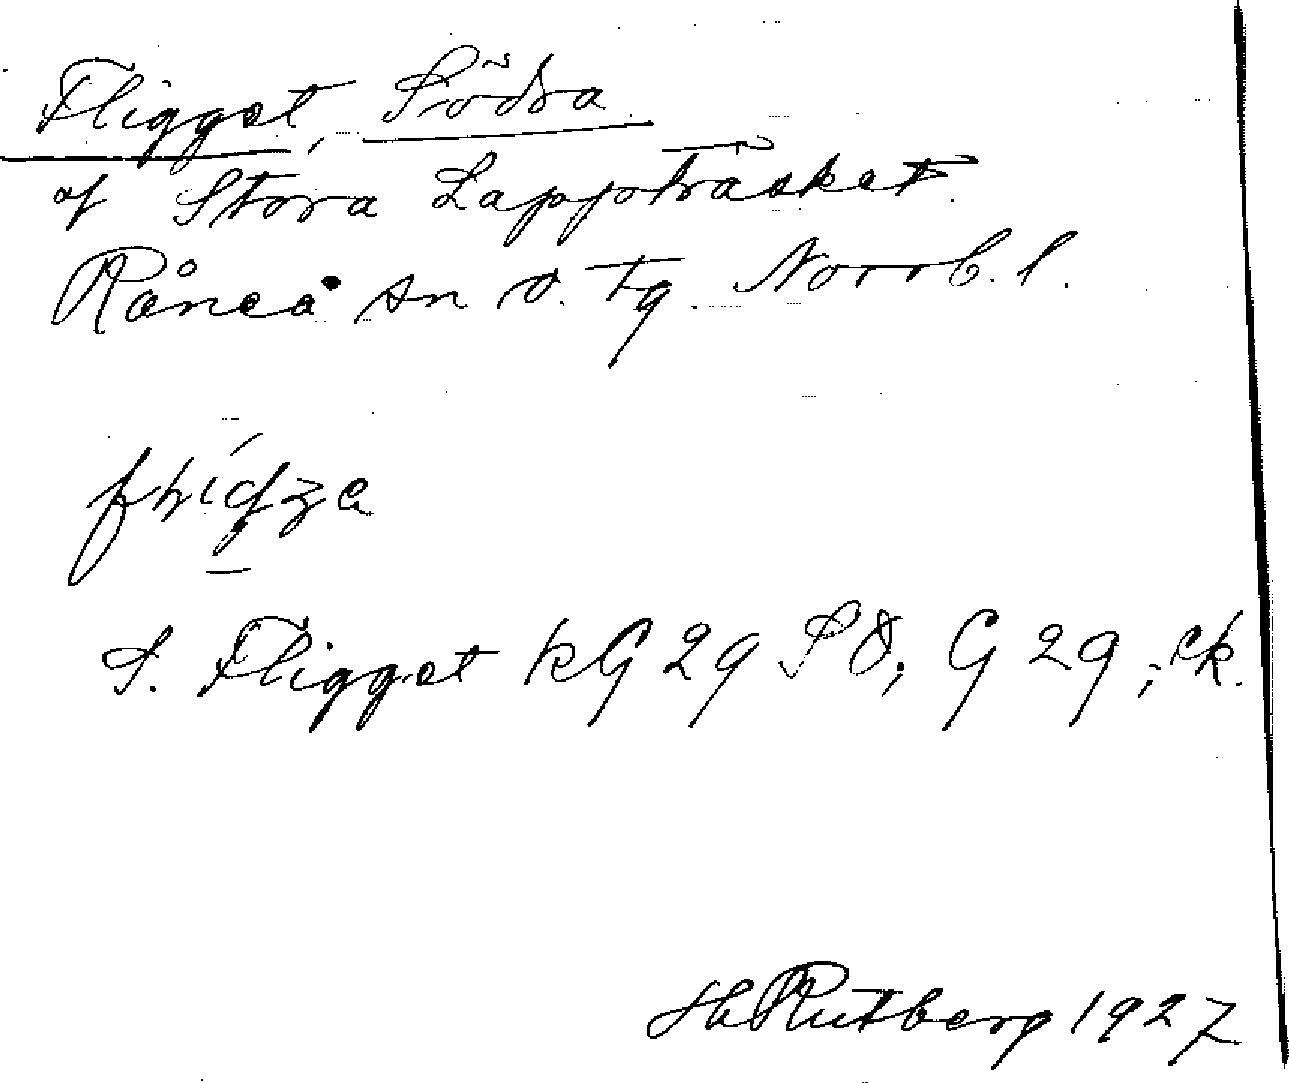 Fligget, Södra
af Stora Lappträsket
Råneå sn n. tg. Norrb. l.
S. Fligget kG 29 SO, G 29, ek.
H Rutberg 1927